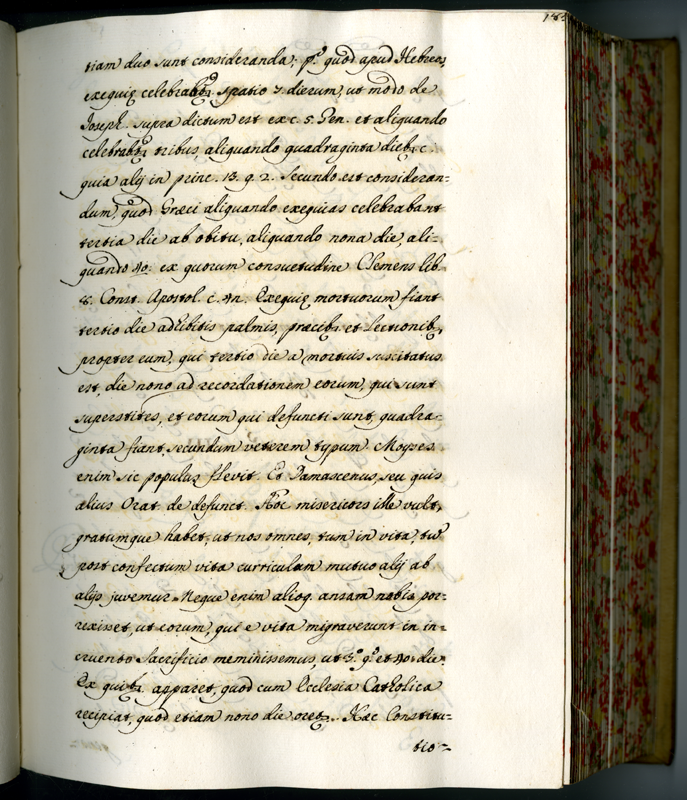 tiam duo sunt consideranda; p.º quod apud Hebreos
exequię celebrabtr. spatio 7. dierum, ut modo de
Joseph. supra dictum est ex c. 5. Gen. et aliquando
celebrabtr tribus, aliquando quadraginta dieb. c.
quia alij in princ. 13. q. 2. Secundo est consideran=
dum, quod Græci aliquando exequias celebrabant
tertia die ab obitu, aliquando nona die, ali=
quando 40. ex quorum consuetudine Clemens lib.
8. Const. Apostol. c. 42. Exequię mortuorum fiant
tertio die adhibitis psalmis, præcib. et Lectionib,
propter eum, qui tertio die a mortuis suscitatus
est, die nono ad recordationem eorum, qui sunt
superstites, et eorum qui defuncti sunt, quadra=
ginta fiant, secundum veterem typum Moyses
enim sic populus flevit. Et Damascenus, seu quis
alius Orat. de defunct. Hoc misericors ille vult,
gratumque habet, ut nos omnes, tum in vita, tu
post confectum vitæ curriculum mutuo alij ab
alijs juvemur. Neque enim alioq. ansam nobis por=
rexisset, ut eorum, qui e vita migraverunt in in=
cruento Sacrificio meminissemus, ut 3.º 9.º et 40. die.
Ex quibtr apparet, quod cum Ecclesia Catholica
recipiat, quod etiam nono die oretr. Hæc Constitu=
tio=